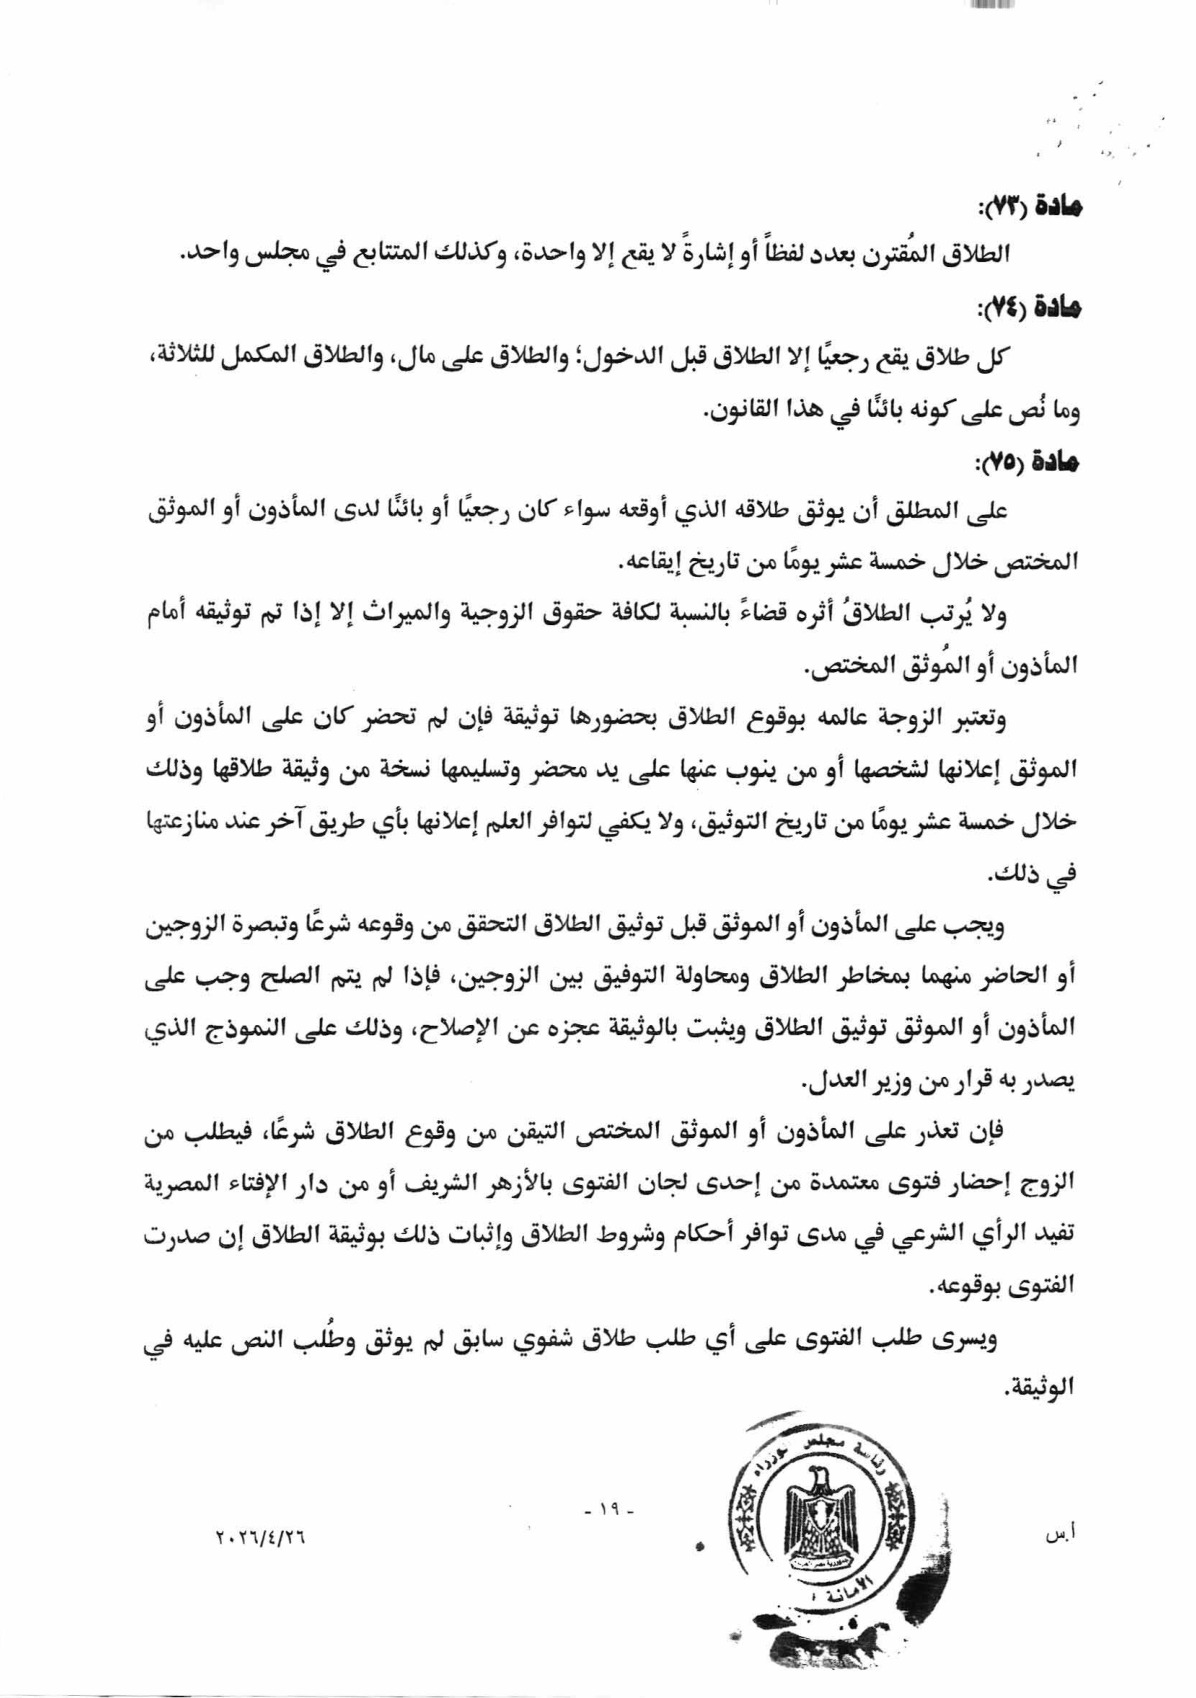 مادة (٧٣):
الطلاق المُقترن بعدد لفظاً أو إشارةً لا يقع إلا واحدة، وكذلك المتتابع في مجلس واحد.
مادة (٧٤):
كل طلاق يقع رجعيًا إلا الطلاق قبل الدخول؛ والطلاق على مال، والطلاق المكمل للثلاثة،
وما نُص على كونه بائنًا في هذا القانون.
مادة (٧٥):
على المطلق أن يوثق طلاقه الذي أوقعه سواء كان رجعيًا أو بائنًا لدى المأذون أو الموثق
المختص خلال خمسة عشر يومًا من تاريخ إيقاعه.
ولا يُرتب الطلاقُ أثره قضاءً بالنسبة لكافة حقوق الزوجية والميراث إلا إذا تم توثيقه أمام
المأذون أو المُوثق المختص.
وتعتبر الزوجة عالمه بوقوع الطلاق بحضورها توثيقة فإن لم تحضر كان على المأذون أو
الموثق إعلانها لشخصها أو من ينوب عنها على يد محضر وتسليمها نسخة من وثيقة طلاقها وذلك
خلال خمسة عشر يومًا من تاريخ التوثيق، ولا يكفي لتوافر العلم إعلانها بأي طريق آخر عند منازعتها
في ذلك.
ويجب على المأذون أو الموثق قبل توثيق الطلاق التحقق من وقوعه شرعًا وتبصرة الزوجين
أو الحاضر منهما بمخاطر الطلاق ومحاولة التوفيق بين الزوجين، فإذا لم يتم الصلح وجب على
المأذون أو الموثق توثيق الطلاق ويثبت بالوثيقة عجزه عن الإصلاح، وذلك على النموذج الذي
يصدر به قرار من وزير العدل.
فإن تعذر على المأذون أو الموثق المختص التيقن من وقوع الطلاق شرعًا، فيطلب من
الزوج إحضار فتوى معتمدة من إحدى لجان الفتوى بالأزهر الشريف أو من دار الإفتاء المصرية
تفيد الرأي الشرعي في مدى توافر أحكام وشروط الطلاق وإثبات ذلك بوثيقة الطلاق إن صدرت
الفتوى بوقوعه.
ويسرى طلب الفتوى على أي طلب طلاق شفوي سابق لم يوثق وطُلب النص عليه في
الوثيقة.
رئاسة مجلس الوزراء
الأمانة
أ.س
- ١٩ -
٢٠٢٦/٤/٢٦